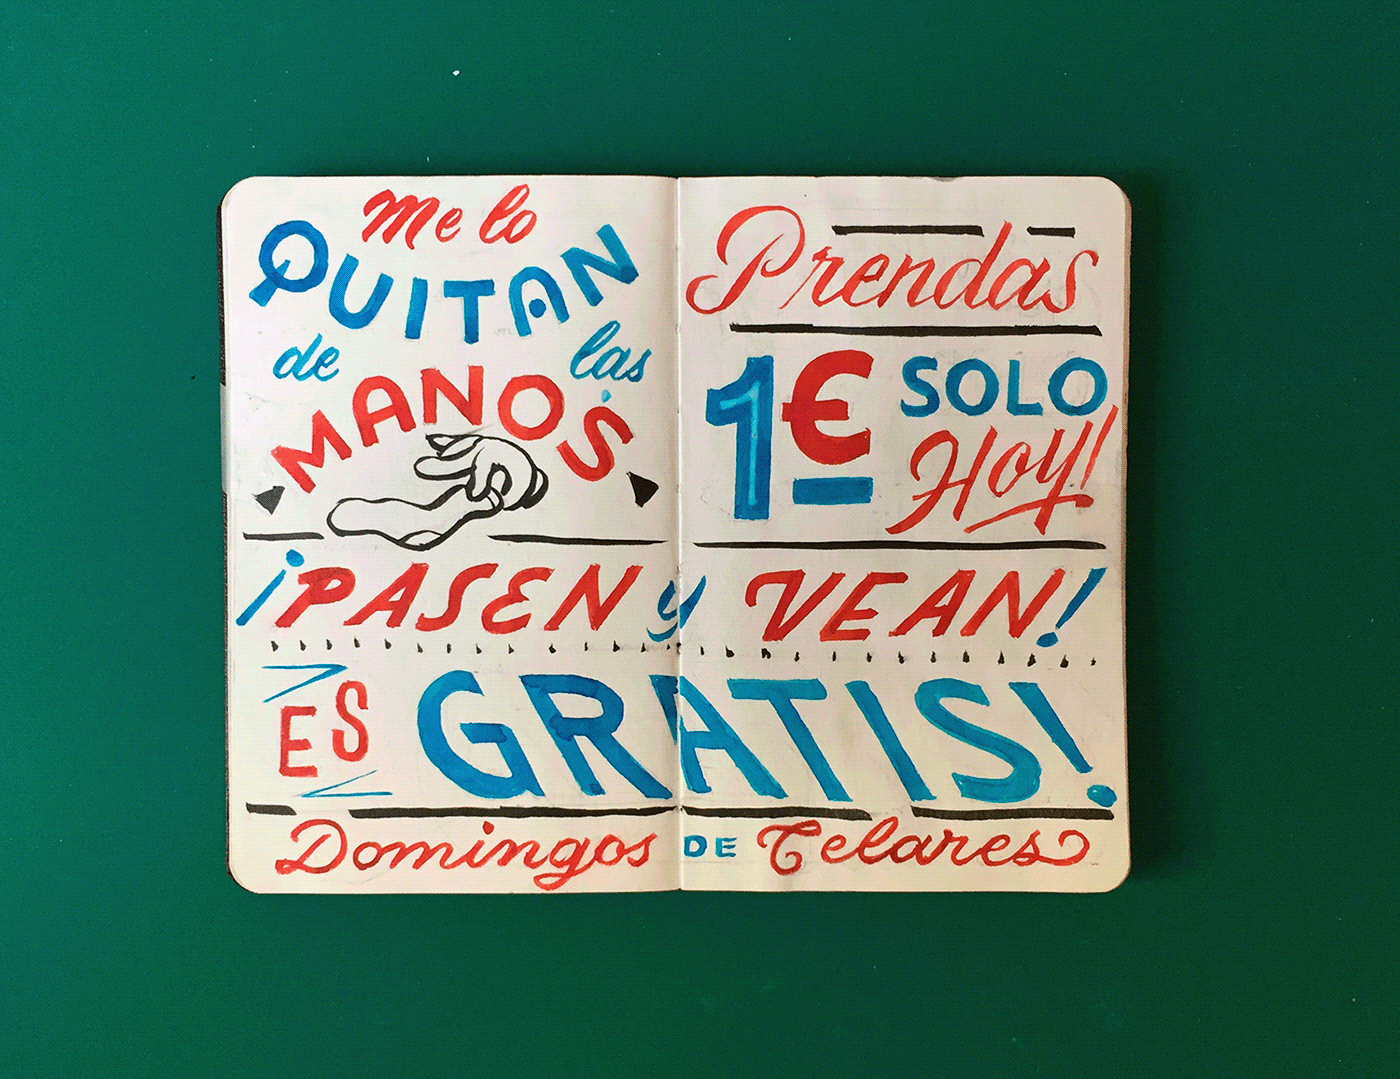 Me lo
QUITAN
de las
MANOS
Prendas
1€ SOLO
Hoy!
¡PASEN y VEAN!
ES GRATIS!
Domingos DE Telares